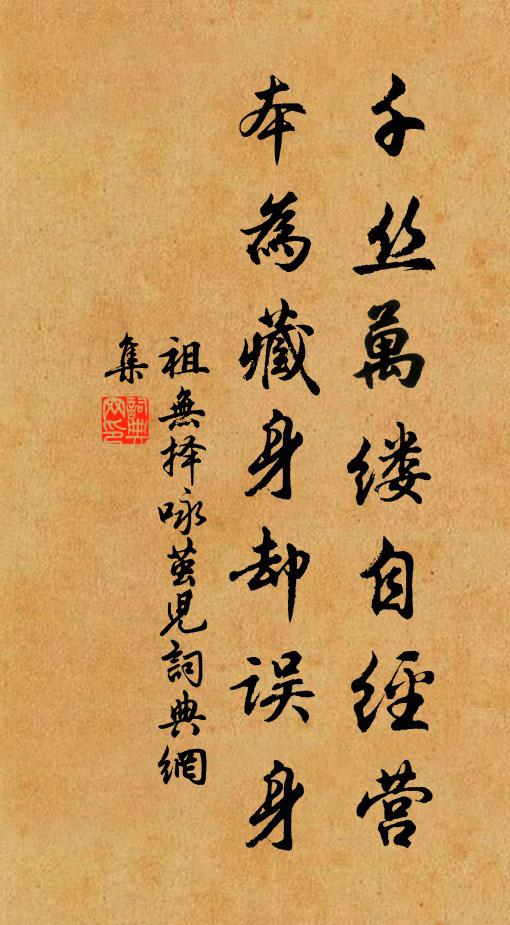 千丝萬缕自經营
本為藏身却误身
祖無择咏茧見詞典網
集
詞典
网印